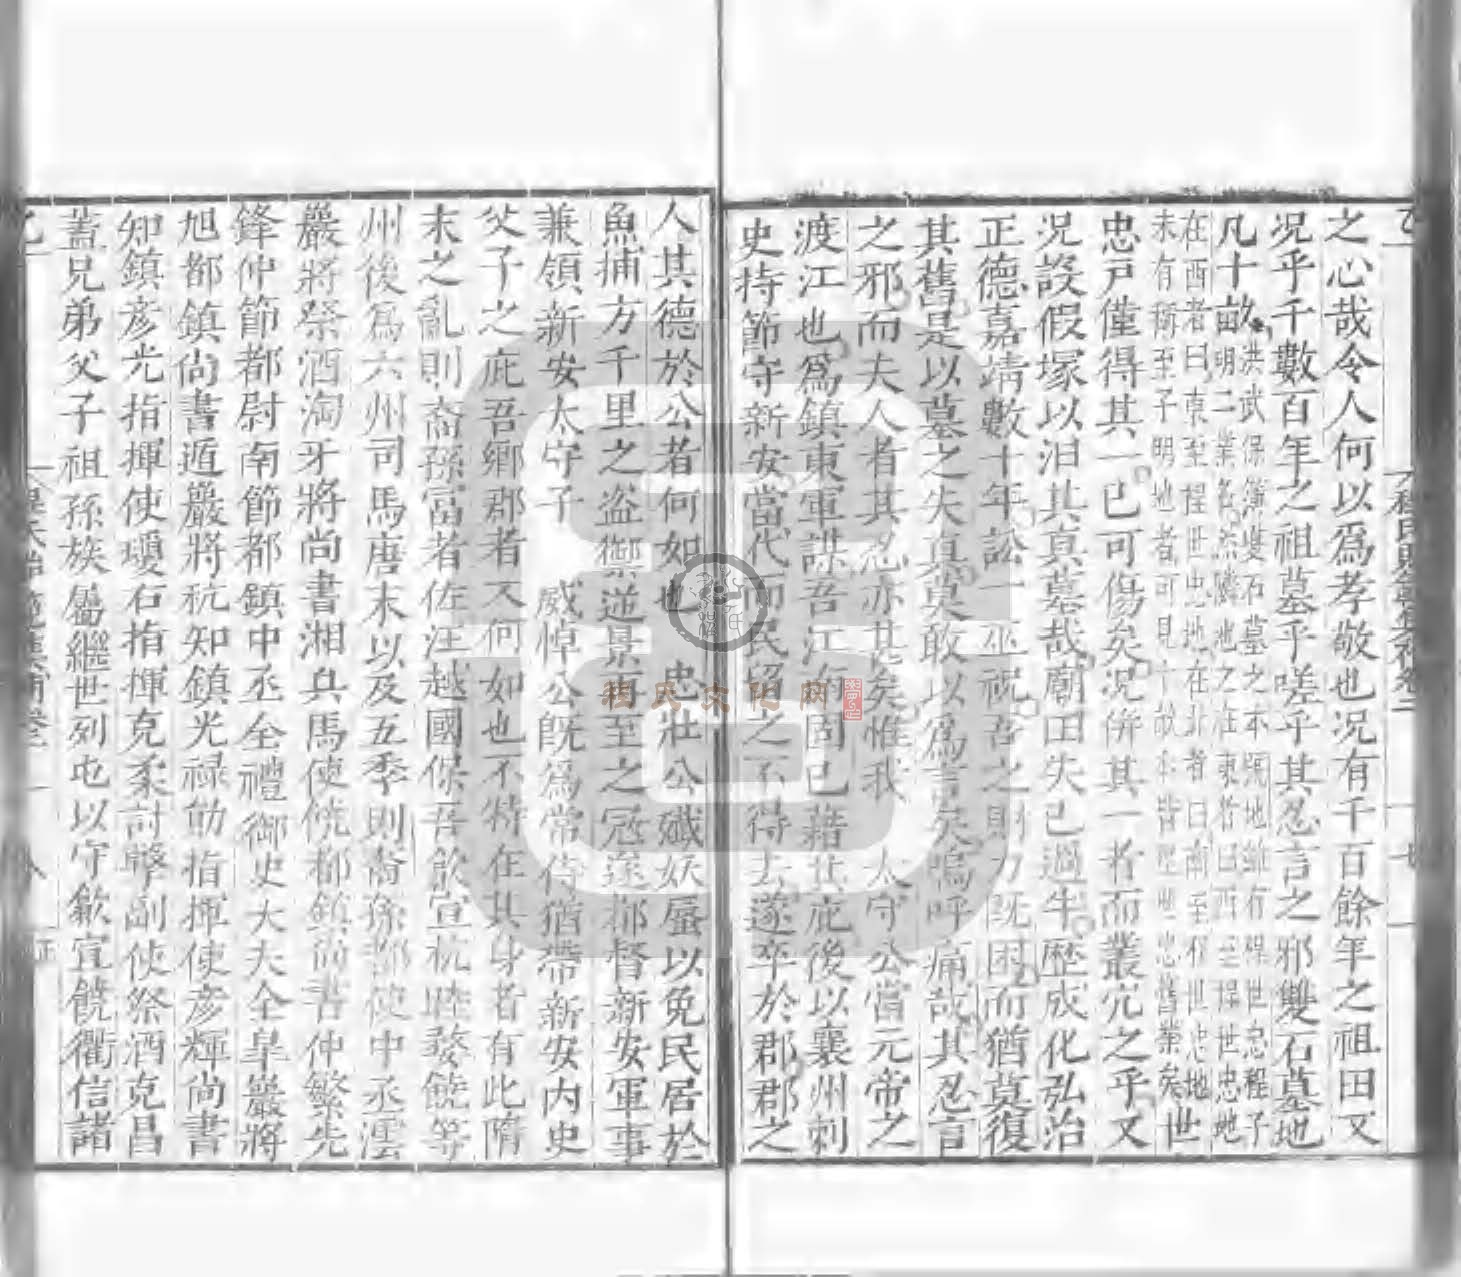 之心哉令人何以爲孝敬也况有千百餘年之祖田又
况乎千數百年之祖墓乎嗟乎其忍言之邪雙石墓地
凡十畝洪武保簿雙石墓之不地雖有程世忠程子
明二業名然隣地之在東者曰西至程世忠地
在酉者曰東至程世忠地在北者曰南至程世忠地
未有稱至子明地者可見十畝舊業矣世
忠戸僅得其一已可傷矣况併其一者而叢宂之乎又
况設假塚以汨其真墓哉廟田失已過半歴成化弘治
正德嘉靖數十年訟一巫祝吾之財力既困而猶莫復
其舊是以墓之失真莫敢以爲言矣嗚呼痛哉其忍言
之邪而夫人者其忍亦甚矣惟我 太守公當元帝之
渡江也爲鎮東軍謀吾江南固已藉其庇後以襄州刺
史持節守新安當代而民留之不得去遂卒於郡郡之
人其德於公者何如也 忠壯公殲妖蜃以免民居於
魚捕方千里之盗禦逆景再至之冦遂都督新安軍事
兼領新安太守子 威悼公既爲常侍猶帶新安内史
父子之庇吾郷郡者又何如也不特在其身者有此隋
末之亂則裔孫富者佐汪越國保吾歙宣杭睦婺饒等
州後爲六州司馬唐末以及五季則裔孫都使中丞澐
巖將祭酒淘牙將尚書湘兵馬使統都鎮尚書仲繁先
鋒仲節都尉南節都鎮中丞全禮御史大夫全臯巖將
旭都鎮尚書遁巖將杭知鎮光禄勛指揮使彦輝尚書
知鎮彦光指揮使瓊右指揮克柔討擊副使祭酒克昌
蓋兄弟父子祖孫族屬繼世列屯以守歙宣饒衢信諸
程氏文化网